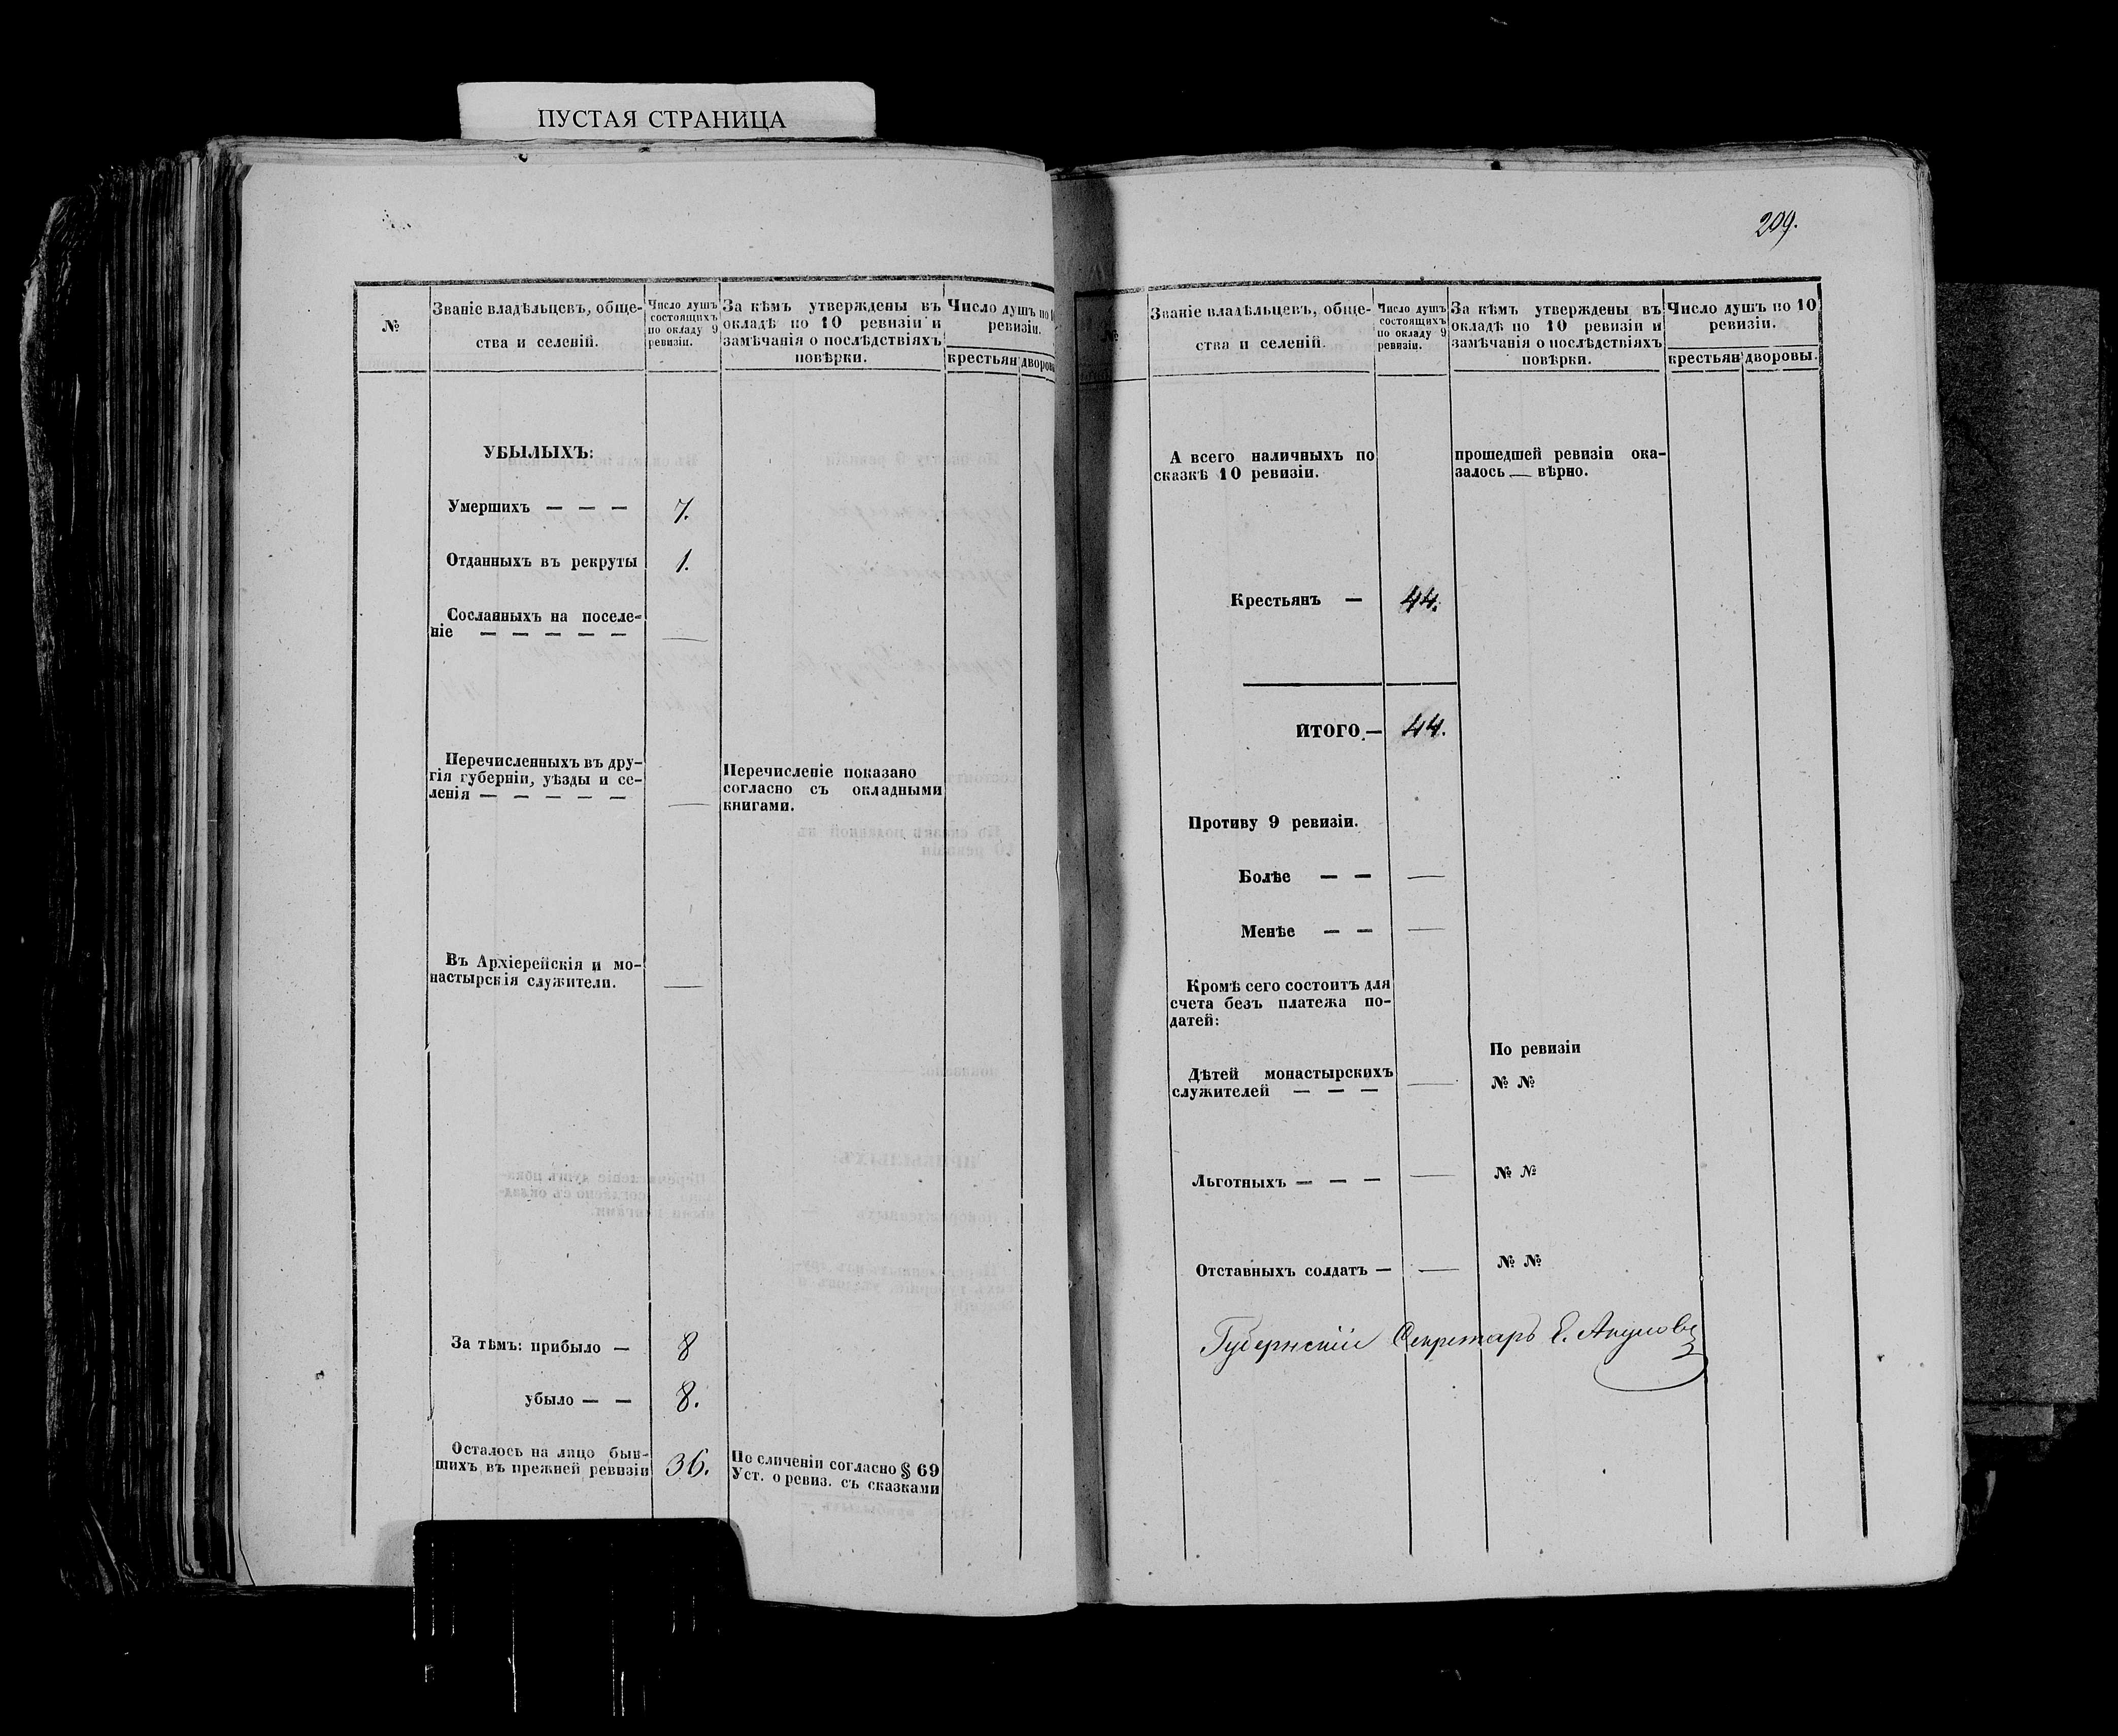 ПУСТАЯ СТРАНИЦА
№
Званіе владѣльцевъ, обще-
ства и селеній.
Число душъ
состоящихъ
по окладу 9
ревизіи.
За кѣмъ утверждены въ
окладѣ по 10 ревизіи и
замѣчанія о послѣдствіяхъ
повѣрки.
Число душъ по 10
ревизіи.
крестьян
дворовы
УБЫЛЫХЪ:
Умершихъ — — — 7.
Отданныхъ въ рекруты 1.
Сосланныхъ на поселе-
ніе — — — — — —
Перечисленныхъ въ дру-
гія губерніи, уѣзды и се-
ленія — — — — — —
Перечисленіе показано
согласно съ окладными
книгами.
Въ Архіерейскія и мо-
настырскія служители. —
За тѣмъ: прибыло — 8
убыло — — 8.
Осталось на лицо быв-
шихъ въ прежней ревизіи 36.
По сличеніи согласно § 69
Уст. о ревиз. съ сказками
209.
№
Званіе владѣльцевъ, обще-
ства и селеній.
Число душъ
состоящихъ
по окладу 9
ревизіи.
За кѣмъ утверждены въ
окладѣ по 10 ревизіи и
замѣчанія о послѣдствіяхъ
повѣрки.
Число душъ по 10
ревизіи.
крестьян
дворовы.
А всего наличныхъ по
сказкѣ 10 ревизіи.
прошедшей ревизіи ока-
залось — вѣрно.
Крестьянъ — 44.
ИТОГО — 44.
Противу 9 ревизіи.
Болѣе — — —
Менѣе — — —
Кромѣ сего состоитъ для
счета безъ платежа по-
датей:
По ревизіи
Дѣтей монастырскихъ
служителей — — — —
№ №
Льготныхъ — — — — № №
Отставныхъ солдатъ — — № №
Губернскій Секретарь Е.